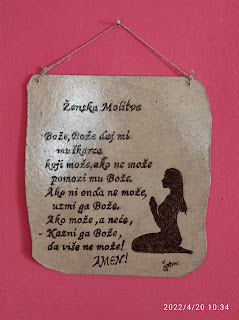 Ženska Molitva
Bože, Bože daj mi
muškarca
koji može, ako ne može
pomozi mu Bože.
Ako ni onda ne može,
uzmi ga Bože.
Ako može, a neće,
- Kazni ga Bože,
da više ne može!
AMEN!
2022/4/20 10:34